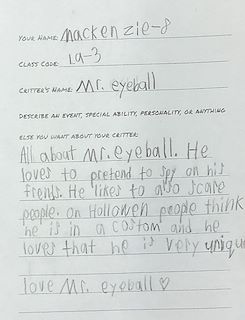 YOUR NAME: Mackenzie-8
CLASS CODE: LA-3
CRITTER'S NAME: Mr. eyeball
DESCRIBE AN EVENT, SPECIAL ABILITY, PERSONALITY, OR ANYTHING
ELSE YOU WANT ABOUT YOUR CRITTER:
All about Mr. eyeball. He
loves to pretend to spy on his
frends. He likes to also scare
people. on Hollowen people think
he is in a costom and he
loves that he is very unique
love Mr. eyeball ♡